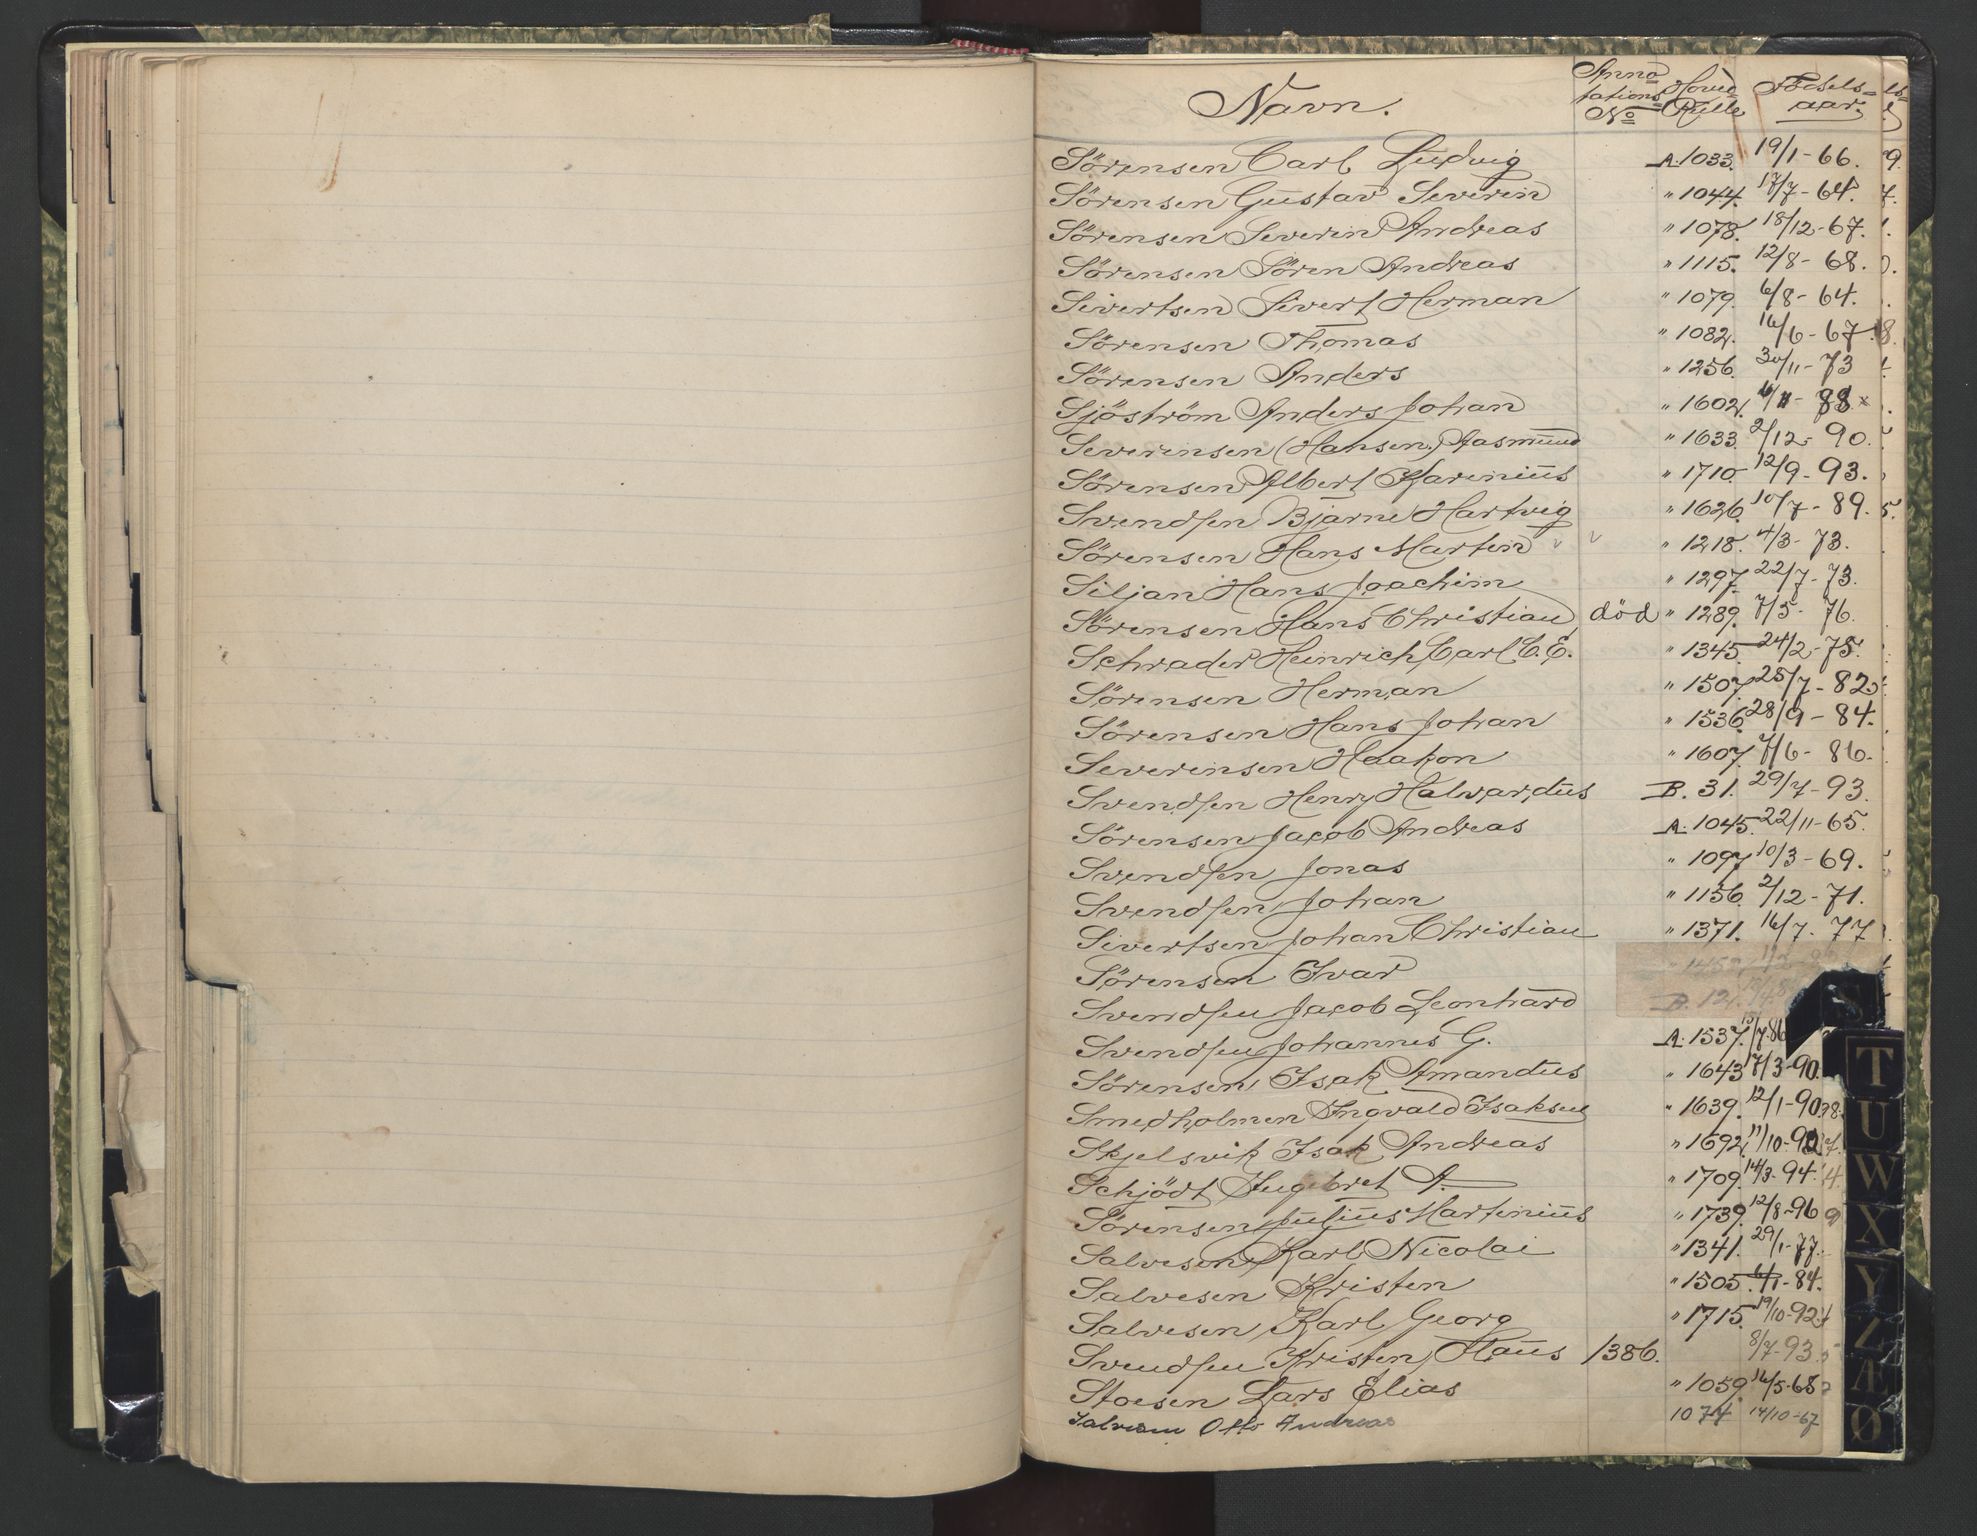 Navn. Annotations No Hoved Rulle Födselsaar.
Sörensen Carl Ludvig A. 1033. 19/1-66.
Sörensen Gustav Severin " 1044. 17/7-64.
Sörensen Severin Andreas " 1078. 18/12-67.
Sörensen Sören Andreas " 1115. 12/8-68.
Sivertsen Sivert Herman " 1079. 6/8-64.
Sörensen Thomas " 1082. 16/6-67.
Sörensen Anders " 1256. 30/11-73
Sjöström Anders Johan " 1602. 88 x
Severinsen (Hansen.) Aasmund " 1633. 2/12-90.
Sörensen Albert Karinius " 1710. 12/9-93.
Svendsen Bjarne Hartvig " 1626. 10/7-89.
Sörensen Hans Martin v v " 1218. 4/3-73.
Siljan Hans Joachim " 1297. 22/7-73.
Sörensen Hans Christian död " 1289. 7/5-76.
Schrader Heinrich Carl C. E. " 1345. 24/2-75.
Sörensen Herman " 1507. 25/7-82
Sörensen Hans Johan " 1536. 28/9-84.
Severinsen Haakon " 1607. 7/6-86.
Svendsen Henry Halvardus B. 31. 29/7-93.
Sörensen Jacob Andreas A. 1045. 22/11-65.
Svendsen Jonas " 1097. 10/3-69.
Svendsen Johan " 1156. 2/12-71.
Sivertsen Johan Christian " 1371. 16/7-77
Sörensen Ivar "
Svendsen Jacob Leonhard B. 121.
Svendsen Johannes G. A. 1537. 15/7-86
Sörensen Isak Amandus " 1643 7/3-90.
Smedholmen Ingvald Isaksen " 1639. 12/1-90
Skjelsvik Isak Andreas " 1692. 11/10-92
Schjödt Ingebret A. " 1709. 14/3-94.
Sörensen Julius Martinius " 1739. 12/8-96
Salvesen Karl Nicolai " 1341. 29/1-77.
Salvesen Kristen " 1505. 6/1-84.
Salvesen Karl Georg " 1715. 19/10-92.
Svendsen Kristen Hans 1386. 8/7-93
Stoesen Lars Elias " 1059. 16/5-68
Salvesen Otto Andreas 1074 14/10-67
S
T
U
W
X
Y
Z
Æ
Ø